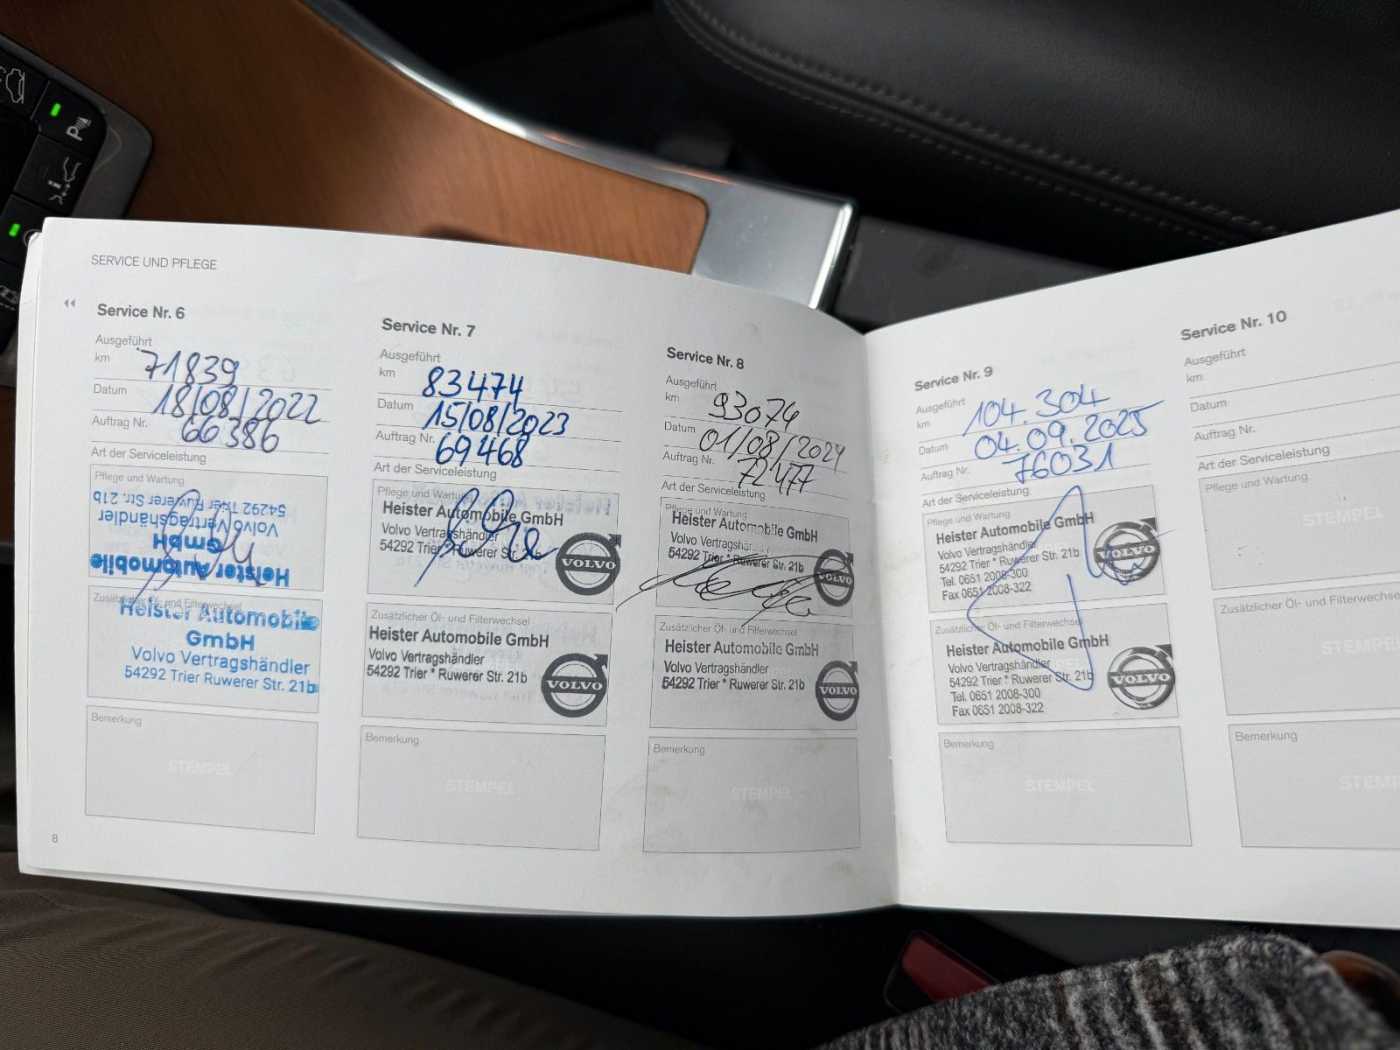 SERVICE UND PFLEGE
Service Nr. 6
Ausgeführt
km 71839
Datum 18/08/2022
Auftrag Nr. 66386
Art der Serviceleistung
Pflege und Wartung
Heister Automobile
GmbH
Volvo Vertragshändler
54292 Trier Ruwerer Str. 21b
Zusätzlicher Öl- und Filterwechsel
Heister Automobile
GmbH
Volvo Vertragshändler
54292 Trier Ruwerer Str. 21b
Bemerkung
STEMPEL
8
Service Nr. 7
Ausgeführt
km 83474
Datum 15/08/2023
Auftrag Nr. 69468
Art der Serviceleistung
Pflege und Wartung
Heister Automobile GmbH
Volvo Vertragshändler
54292 Trier * Ruwerer Str. 21b
VOLVO
Zusätzlicher Öl- und Filterwechsel
Heister Automobile GmbH
Volvo Vertragshändler
54292 Trier * Ruwerer Str. 21b
VOLVO
Bemerkung
STEMPEL
Service Nr. 8
Ausgeführt
km 93074
Datum 01/08/2024
Auftrag Nr. 72477
Art der Serviceleistung
Pflege und Wartung
Heister Automobile GmbH
Volvo Vertragshändler
54292 Trier * Ruwerer Str. 21b
VOLVO
Zusätzlicher Öl- und Filterwechsel
Heister Automobile GmbH
Volvo Vertragshändler
54292 Trier * Ruwerer Str. 21b
VOLVO
Bemerkung
STEMPEL
Service Nr. 9
Ausgeführt
km 104.304
Datum 04.09.2025
Auftrag Nr. 76031
Art der Serviceleistung
Pflege und Wartung
Heister Automobile GmbH
Volvo Vertragshändler
54292 Trier * Ruwerer Str. 21b
Tel. 0651 2008-300
Fax 0651 2008-322
VOLVO
Zusätzlicher Öl- und Filterwechsel
Heister Automobile GmbH
Volvo Vertragshändler
54292 Trier * Ruwerer Str. 21b
Tel. 0651 2008-300
Fax 0651 2008-322
VOLVO
Bemerkung
STEMPEL
Service Nr. 10
Ausgeführt
km
Datum
Auftrag Nr.
Art der Serviceleistung
Pflege und Wartung
STEMPEL
Zusätzlicher Öl- und Filterwechsel
STEMPEL
Bemerkung
STEMPEL